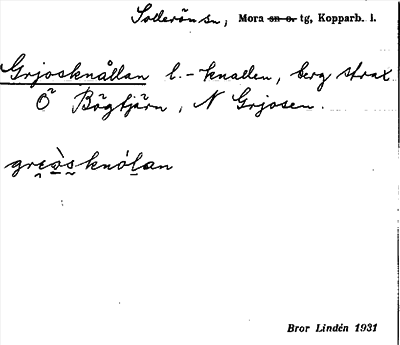 Sollerön sn, Mora sn o. tg, Kopparb. l.
Grjosknållan l. -knallen, berg strax
Ö Bögtjärn, N Grjosen.
grɛ̯ò̱s̱knóḻan
Bror Lindén 1931